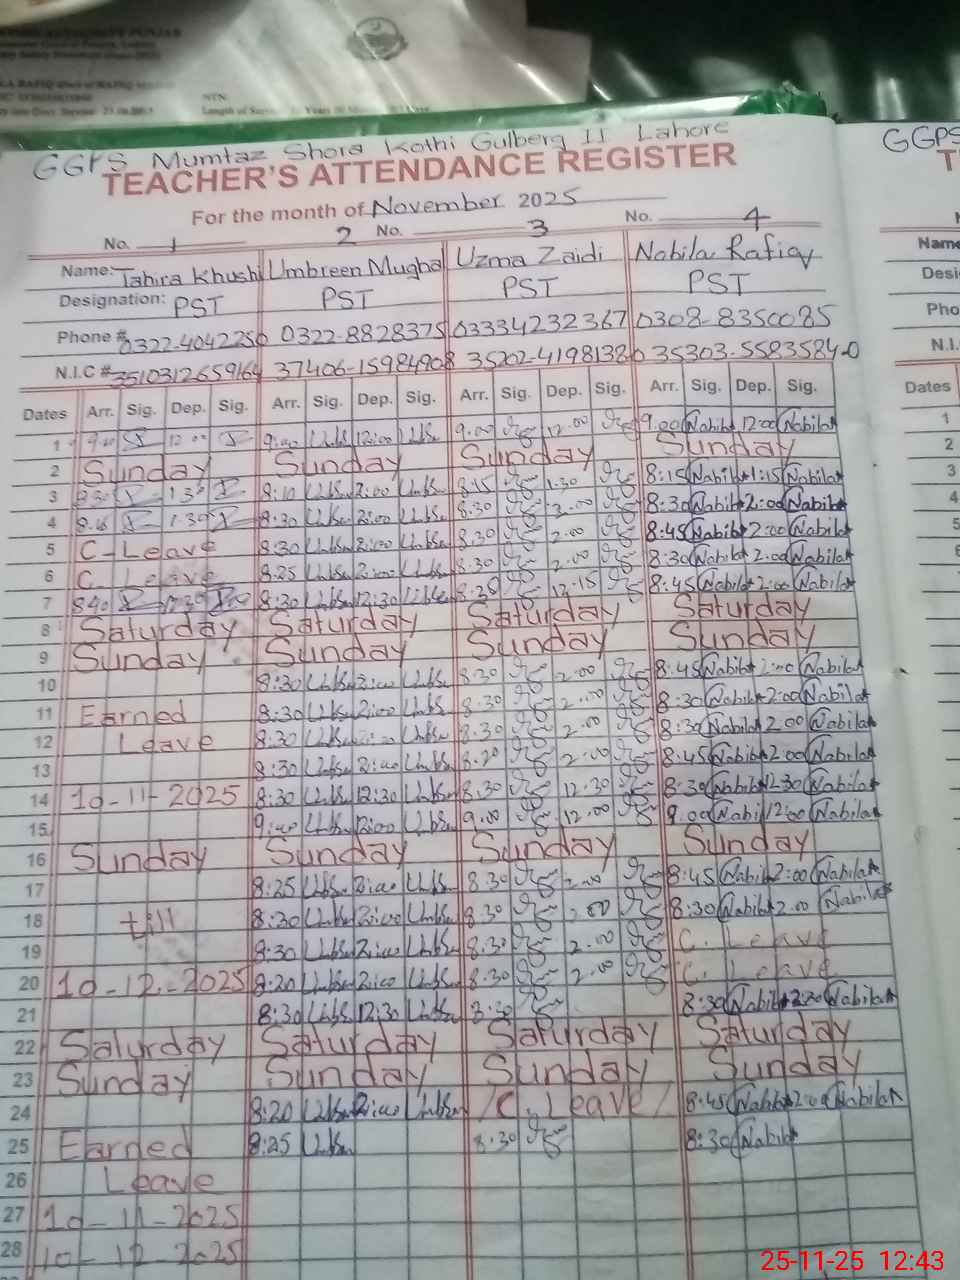 GGPS Mumtaz Shora Kothi Gulberg II Lahore
TEACHER'S ATTENDANCE REGISTER
For the month of November 2025
No. 1 2 No. 3 No. 4
Name: Tahira Khushi Umbreen Mugha Uzma Zaidi Nabila Rafiq
Designation: PST PST PST PST
Phone # 0322-4042250 0322-8828375 03334232367 0308-8350085
N.I.C # 3510312659164 37406-15984908 35202-4198138 0 35303-5583584-0
Dates Arr. Sig. Dep. Sig. Arr. Sig. Dep. Sig. Arr. Sig. Dep. Sig. Arr. Sig. Dep. Sig.
1 9:00 12:00 9:00 12:00 9.00 12.00 9.00 Nabila 12:00 Nabila
2 Sunday Sunday Sunday Sunday
3 8:30 1:30 8:10 2:00 8:15 1:30 8:15 Nabila 1:15 Nabila
4 1:30 8:30 2:00 8:30 2.00 8:30 Nabila 2:00 Nabila
5 C-Leave 8:30 2:00 8.30 2.00 8:45 Nabila 2:00 Nabila
6 C. Leave 8:25 2:00 8.30 2.00 8:30 Nabila 2:00 Nabila
7 8:40 12:30 8:30 12:30 12.15 8:45 Nabila 2:00 Nabila
8 Saturday Saturday Saturday Saturday
9 Sunday Sunday Sunday Sunday
10 8:30 2:00 8.30 2.00 8:45 Nabila 2:00 Nabila
11 Earned 8:30 2:00 8.30 2.00 8:30 Nabila 2:00 Nabila
12 Leave 8:30 8.30 2.00 8:30 Nabila 2:00 Nabila
13 8:30 2:00 8.20 2.00 8:45 Nabila 2:00 Nabila
14 10-11-2025 8:30 12:30 8.30 12.30 8:30 Nabila 12:30 Nabila
15 9:00 12:00 9.00 12.00 9.00 Nabila 12:00 Nabila
16 Sunday Sunday Sunday Sunday
17 8:25 2:00 8.30 2.00 8:45 Nabila 2:00 Nabila
18 till 8:30 2:00 8.30 2.00 8:30 Nabila 2.00 Nabila
19 8:30 2:00 8.30 2.00 C. Leave
20 10-12-2025 8:20 2:00 8.30 2.00 C. Leave
21 8:30 12:30 8:30 Nabila Nabila
22 Saturday Saturday Saturday Saturday
23 Sunday Sunday Sunday Sunday
24 8:20 2:00 C. Leave 8:45 Nabila 2:00 Nabila
25 Earned 8:25 8.30 8:30 Nabila
26 Leave
27 10-11-2025
28 10-12-2025
GGPS
Name
Desi
Pho
N.I.
Dates
1
2
3
4
5
6
25-11-25 12:43